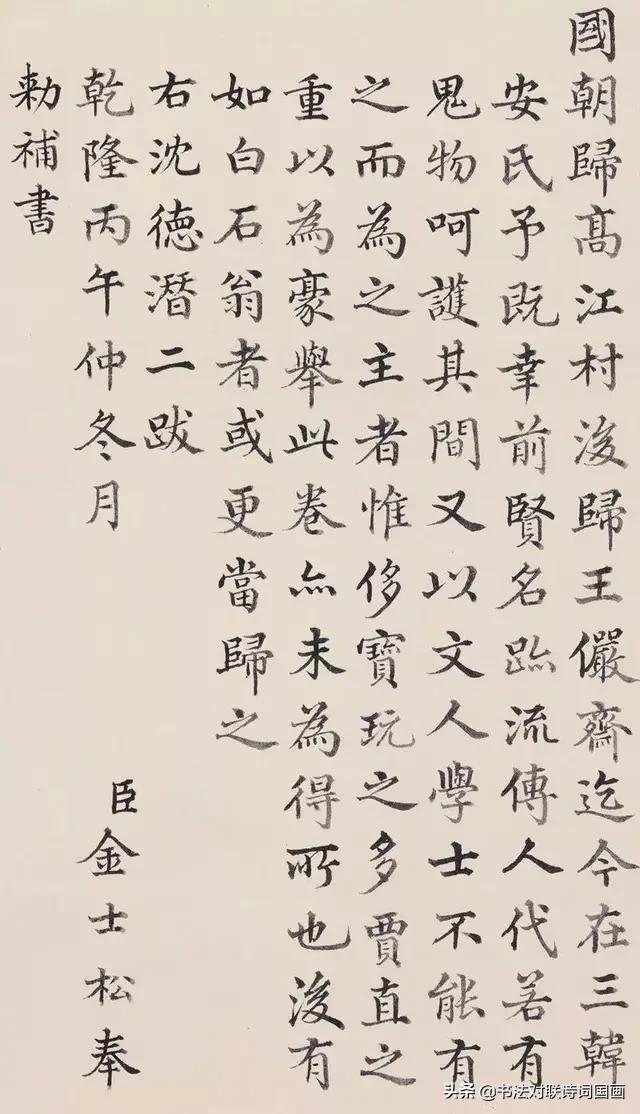 國朝歸髙江村後歸王儼齋迄今在三韓
安氏予既幸前賢名跡流傳人代若有
鬼物呵護其間又以文人學士不能有
之而為之主者惟侈寶玩之多賈直之
重以為豪舉此卷亦未為得所也後有
如白石翁者或更當歸之
右沈德潛二跋
乾隆丙午仲冬月 臣金士松奉
勅補書
头条 @书法对联诗词国画